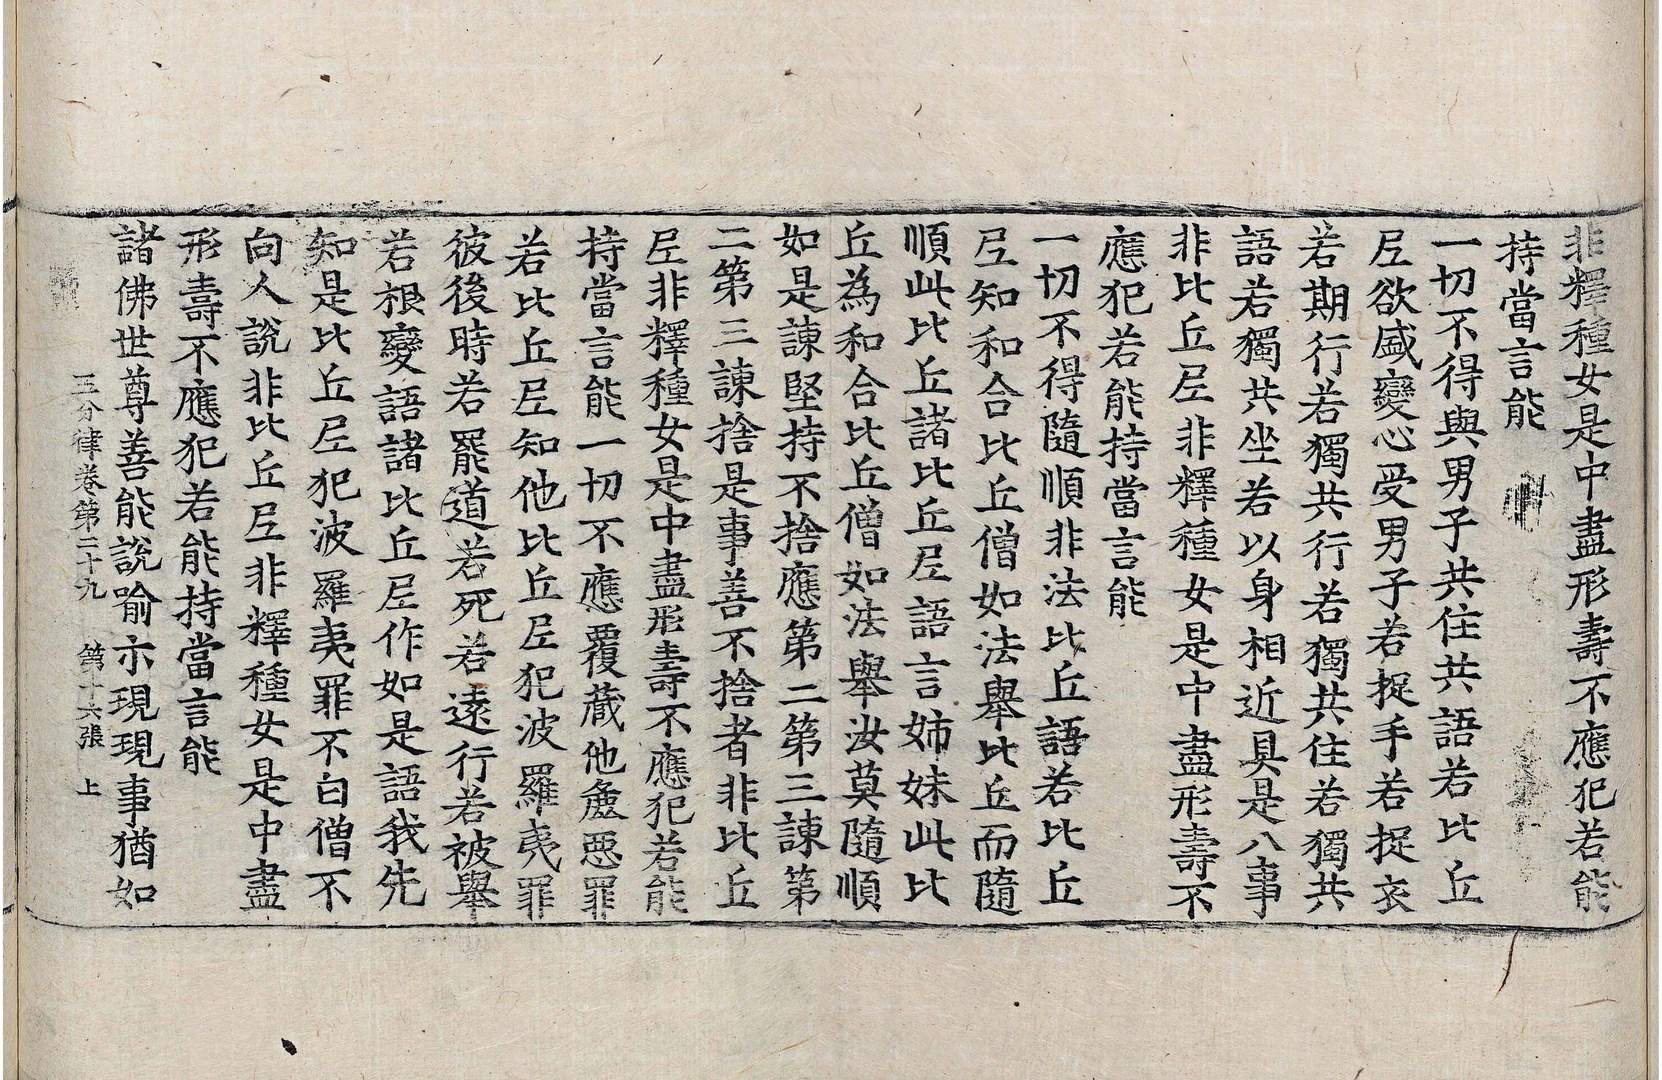 非釋種女是中盡形壽不應犯若能
持當言能
一切不得與男子共住共語若比丘
尼欲盛變心受男子若捉手若捉衣
若期行若獨共行若獨共住若獨共
語若獨共坐若以身相近具是八事
非比丘尼非釋種女是中盡形壽不
應犯若能持當言能
一切不得隨順非法比丘語若比丘
尼知和合比丘僧如法舉比丘而隨
順此比丘諸比丘尼語言姉妹此比
丘為和合比丘僧如法舉汝莫隨順
如是諫堅持不捨應第二第三諫第
二第三諫捨是事善不捨者非比丘
尼非釋種女是中盡形壽不應犯若能
持當言能一切不應覆藏他麁惡罪
若比丘尼知他比丘尼犯波羅夷罪
彼後時若罷道若死若遠行若被舉
若根變語諸比丘尼作如是語我先
知是比丘尼犯波羅夷罪不白僧不
向人說非比丘尼非釋種女是中盡
形壽不應犯若能持當言能
諸佛世尊善能說喻示現現事猶如
五分律卷第二十九 第十六張 上